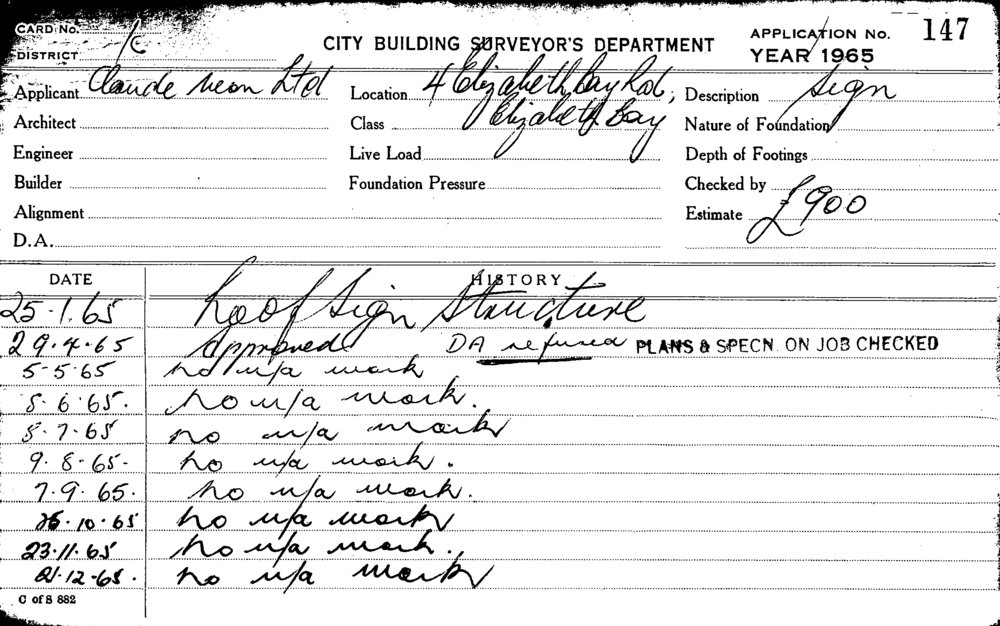 CARD No. CITY BUILDING SURVEYOR'S DEPARTMENT APPLICATION No. 147
DISTRICT YEAR 1965
Applicant Claude Neon Ltd Location 4 Elizabeth Bay Rd, Description Sign
Architect Class Elizabeth Bay Nature of Foundation
Engineer Live Load Depth of Footings
Builder Foundation Pressure Checked by
Alignment Estimate £900
D.A.
DATE HISTORY
25.1.65 Roof Sign Structure
29.4.65 Approved DA refused PLANS & SPECN. ON JOB CHECKED
5-5-65 no u/a work
8.6.65. no u/a work.
8.7.65 no u/a work
9.8.65. no u/a work.
7.9.65. no u/a work.
26.10.65 no u/a work
23.11.65 no u/a work.
21.12.65. no u/a work
C of S 882